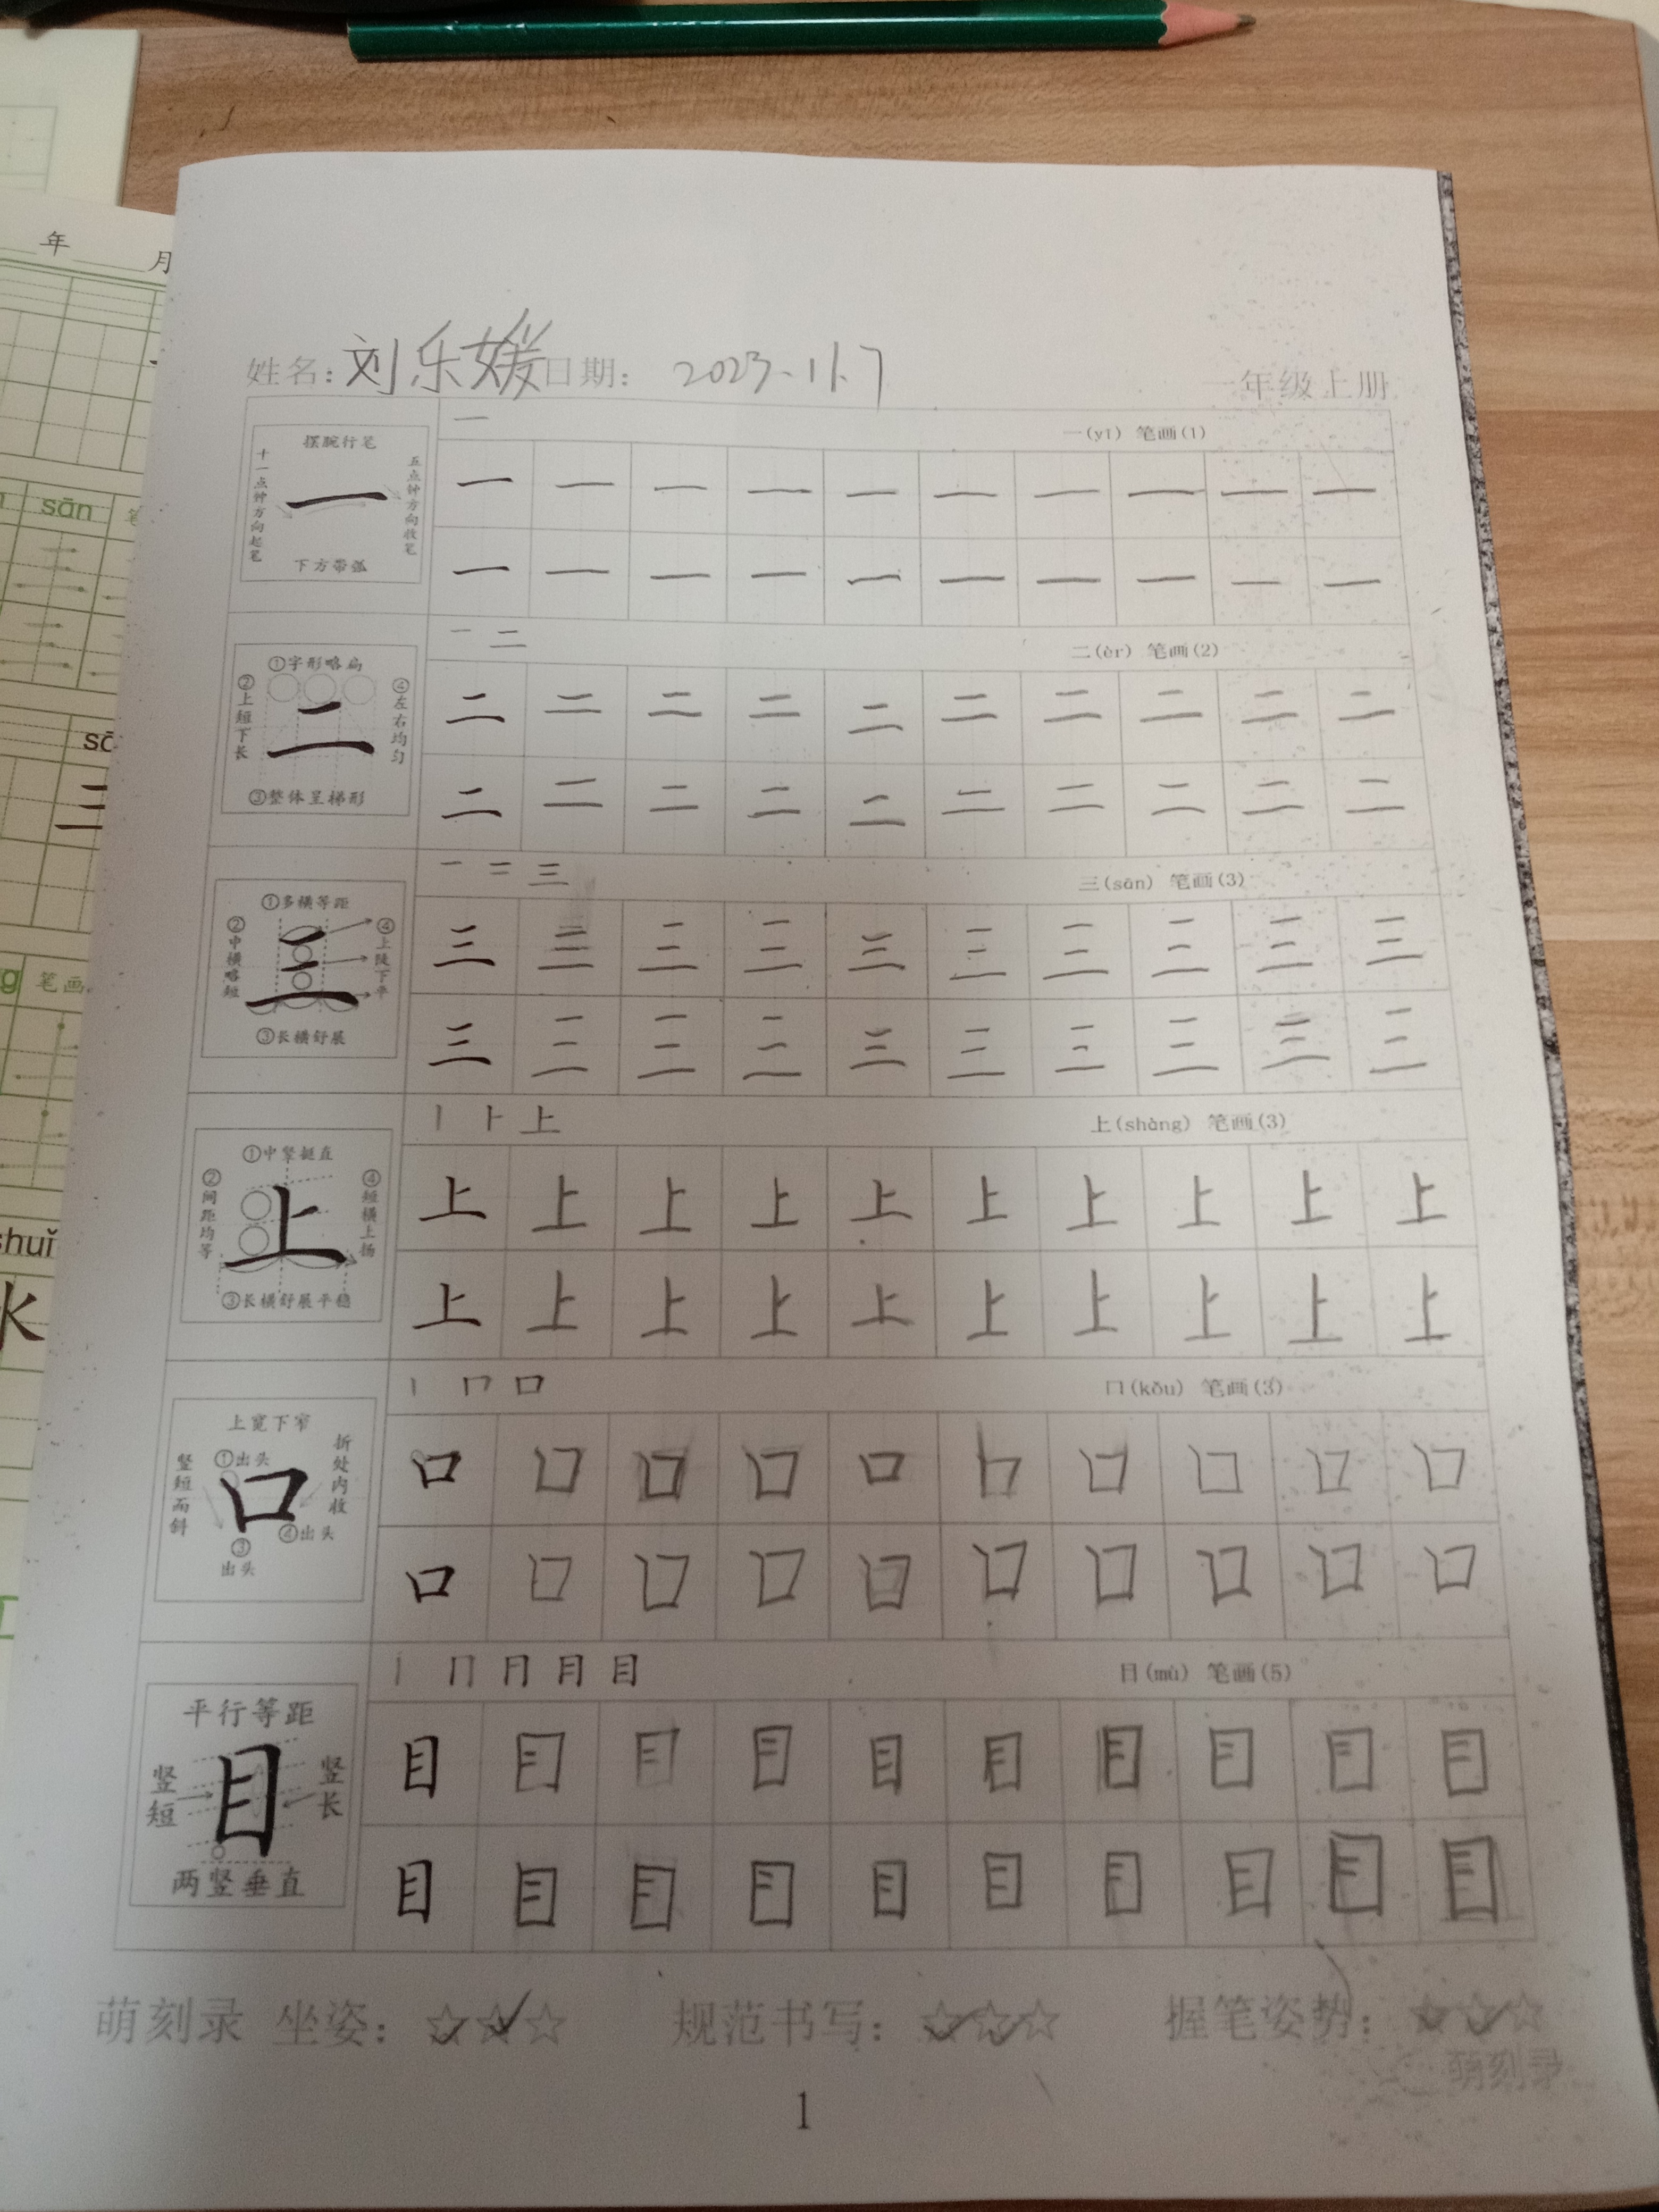 年 月
sān 笔
sā
三
g 笔画
shuǐ
水
姓名：刘乐媛 日期： 2023.11.7 一年级上册
一 一(yī) 笔画(1)
摆腕行笔
十一点钟方向起笔
一
五点钟方向收笔
下方带弧
一 一 一 一 一 一 一 一 一 一
一 一 一 一 一 一 一 一 一 一
一 二 二(èr) 笔画(2)
①字形略扁
②上短下长
二
④左右均匀
③整体呈梯形
二 二 二 二 二 二 二 二 二 二
二 二 二 二 二 二 二 二 二 二
一 二 三 三(sān) 笔画(3)
①多横等距
②中横略短
三
④上陡下平
③长横舒展
三 三 三 三 三 三 三 三 三 三
三 三 三 三 三 三 三 三 三 三
丨 ⺊ 上 上(shàng) 笔画(3)
①中竖挺直
②间距均等
上
④短横上扬
③长横舒展平稳
上 上 上 上 上 上 上 上 上 上
上 上 上 上 上 上 上 上 上 上
丨 冂 口 口(kǒu) 笔画(3)
上宽下窄
竖短而斜
①出头
口
折处内收
③出头
④出头
口 口 口 口 口 口 口 口 口 口
口 口 口 口 口 口 口 口 口 口
丨 冂 月 月 目 目(mù) 笔画(5)
平行等距
竖短
目
竖长
两竖垂直
目 目 目 目 目 目 目 目 目 目
目 目 目 目 目 目 目 目 目 目
萌刻录 坐姿：☆☆☆ 规范书写：☆☆☆ 握笔姿势：☆☆☆
萌刻录
1